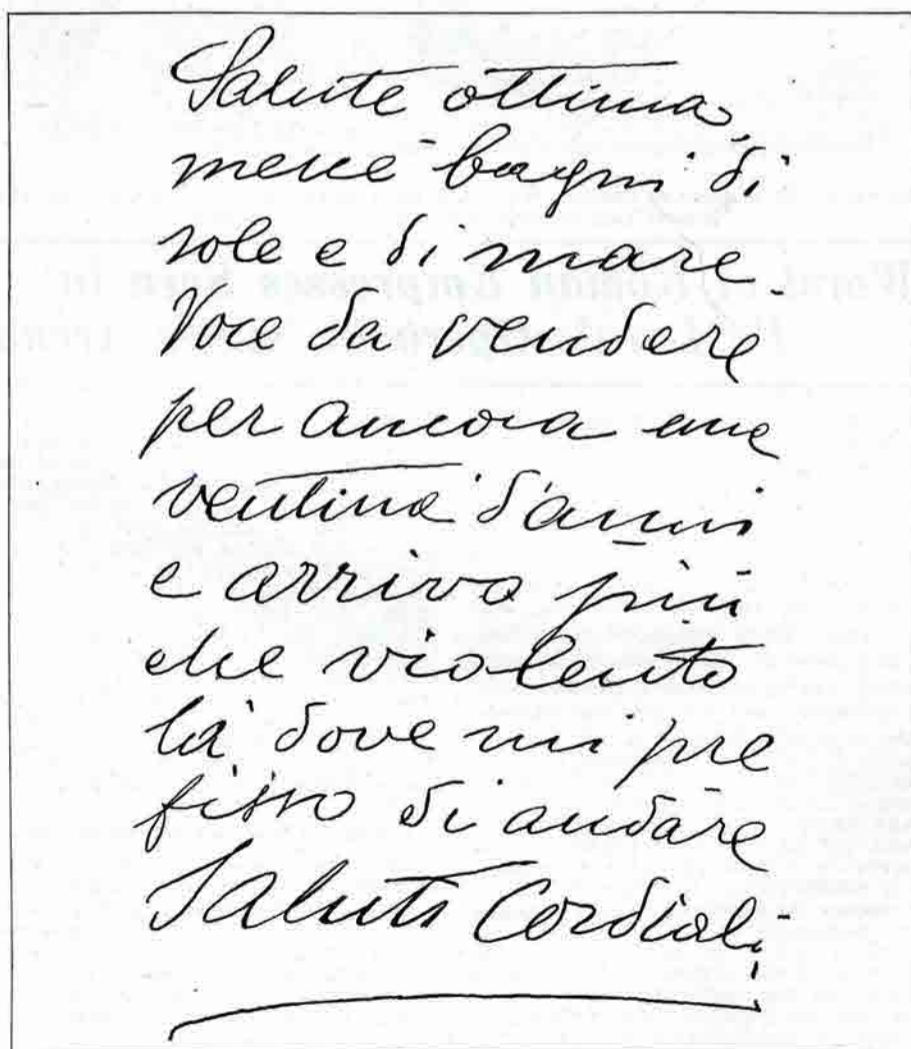 Salute ottima,
mercé bagni di
sole e di mare.
Voce da vendere
per ancora una
ventina d'anni
e arrivo più
che violento
là dove mi pre
fisso di andare
Saluti Cordiali